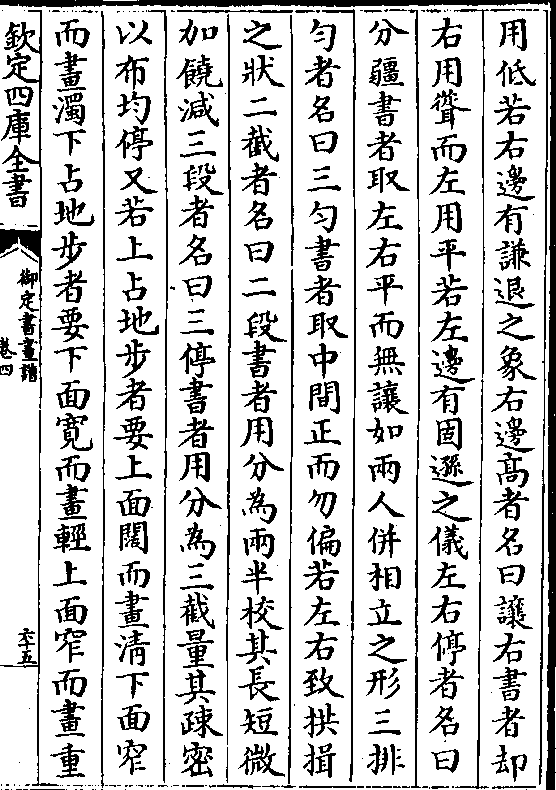 用低若右邊有謙退之象右邊高者名曰讓右書者却
右用聳而左用平若左邊有固遜之儀左右停者名曰
分疆書者取左右平而無讓如兩人併相立之形三排
勻者名曰三勻書者取中間正而勿偏若左右致拱揖
之狀二截者名曰二段書者用分為兩半校其長短微
加饒減三段者名曰三停書者用分為三截量其疎密
以布均停又若上占地步者要上面闊而畫清下面窄
而畫濁下占地步者要下面寛而畫輕上面窄而畫重
欽定四庫全書
御定書畫譜
卷四
六十五